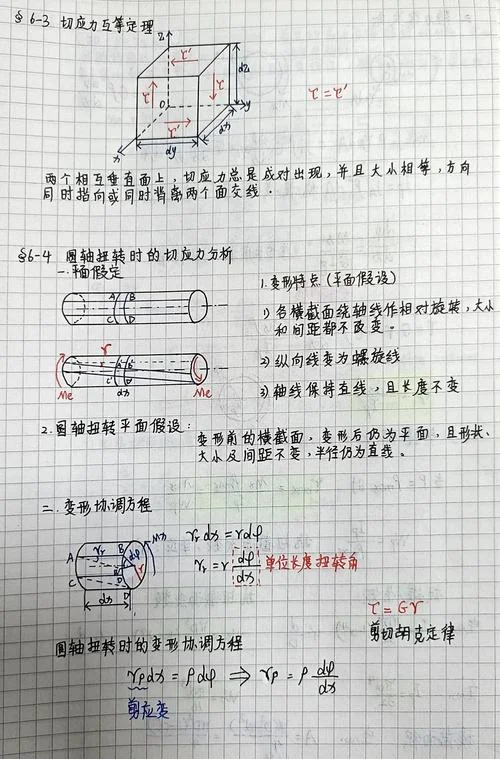 §6-3 切应力互等定理
z
τ'
τ
τ
dz
O
y
τ'
dx
x
dy
τ=τ'
两个相互垂直面上，切应力总是成对出现，并且大小相等，方向
同时指向或同时背离两个面交线．
§6-4 圆轴扭转时的切应力分析
一.平面假定
A B
C D
1.变形特点(平面假设)
1) 各横截面绕轴线作相对旋转，大小
和间距都不改变。
γ
A' B'
C' D'
Me
dx
Me
2) 纵向线变为螺旋线
3) 轴线保持直线，且长度不变
2.圆轴扭转平面假设：
变形前的横截面，变形后仍为平面，且形状、
大小及间距不变，半径仍为直线。
二.变形协调方程
A γr B dφ Mx
B' r
C D
D'
dx
γr dx = rdφ
γr = r dφ/dx 单位长度扭转角
τ=Gγ
剪切胡克定律
圆轴扭转时的变形协调方程
γρdx = ρdφ ⇒ γρ = ρ dφ/dx
剪应变